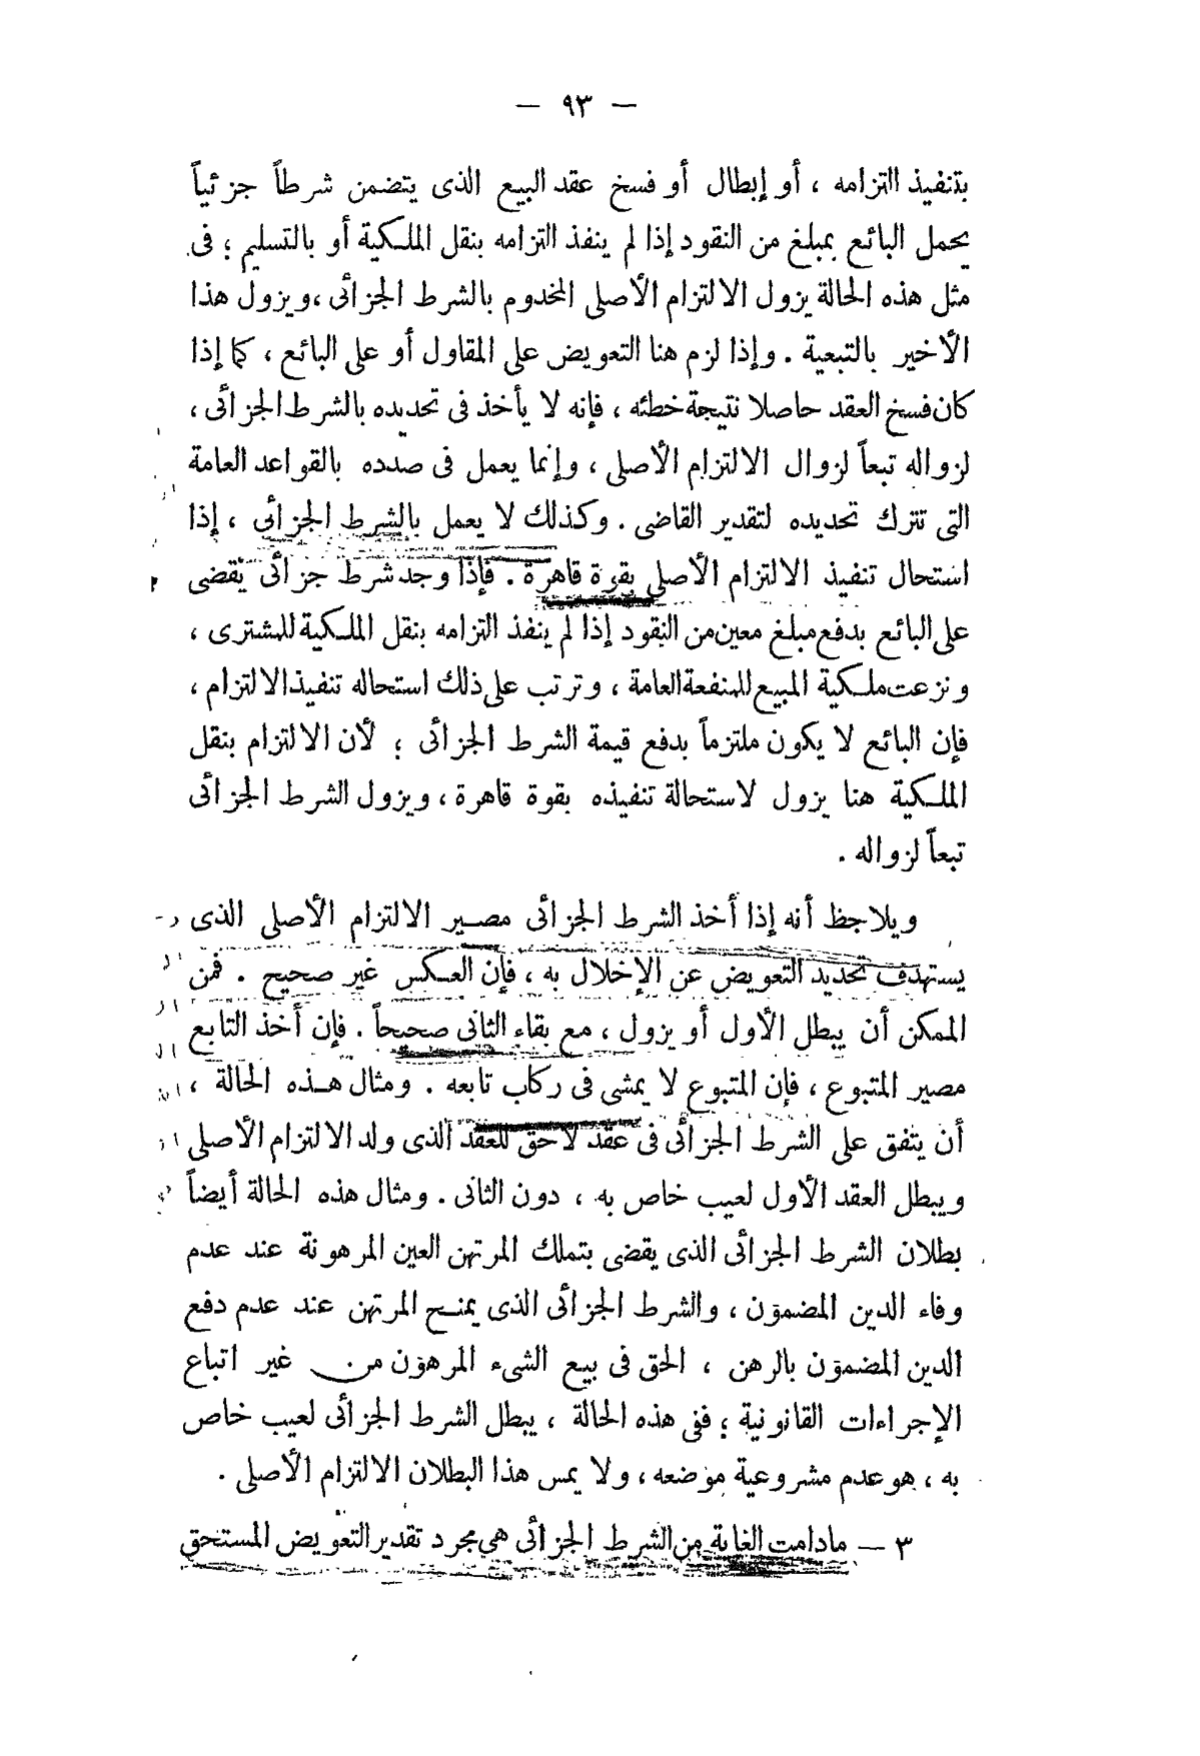 — ٩٣ —
بتنفيذ التزامه ، أو إبطال أو فسخ عقد البيع الذى يتضمن شرطاً جزئياً
يحمل البائع بمبلغ من النقود إذا لم ينفذ التزامه بنقل الملكية أو بالتسليم ؛ فى
مثل هذه الحالة يزول الالتزام الأصلى المخدوم بالشرط الجزائى ، ويزول هذا
الأخير بالتبعية . وإذا لزم هنا التعويض على المقاول أو على البائع ، كما إذا
كان فسخ العقد حاصلا نتيجة خطئه ، فإنه لا يأخذ فى تحديده بالشرط الجزائى ،
لزواله تبعاً لزوال الالتزام الأصلى ، وإنما يعمل فى صدده بالقواعد العامة
التى تترك تحديده لتقدير القاضى . وكذلك لا يعمل بالشرط الجزائى ، إذا
استحال تنفيذ الالتزام الأصلى بقوة قاهرة . فإذا وجد شرط جزائى يقضى
على البائع بدفع مبلغ معين من النقود إذا لم ينفذ التزامه بنقل الملكية للمشترى ،
ونزعت ملكية المبيع للمنفعة العامة ، وترتب على ذلك استحاله تنفيذ الالتزام ،
فإن البائع لا يكون ملتزماً بدفع قيمة الشرط الجزائى ؛ لأن الالتزام بنقل
الملكية هنا يزول لاستحالة تنفيذه بقوة قاهرة ، ويزول الشرط الجزائى
تبعاً لزواله .
ويلاحظ أنه إذا أخذ الشرط الجزائى مصير الالتزام الأصلى الذى
يستهدف تحديد التعويض عن الإخلال به ، فإن العكس غير صحيح . فمن
الممكن أن يبطل الأول أو يزول ، مع بقاء الثانى صحيحاً . فإن أخذ التابع
مصير المتبوع ، فإن المتبوع لا يمشى فى ركاب تابعه . ومثال هذه الحالة ،
أن يتفق على الشرط الجزائى فى عقد لاحق للعقد الذى ولد الالتزام الأصلى
ويبطل العقد الأول لعيب خاص به ، دون الثانى . ومثال هذه الحالة أيضاً
بطلان الشرط الجزائى الذى يقضى بتملك المرتهن العين المرهونة عند عدم
وفاء الدين المضمون ، والشرط الجزائى الذى يمنح المرتهن عند عدم دفع
الدين المضمون بالرهن ، الحق فى بيع الشىء المرهون من غير اتباع
الإجراءات القانونية ؛ ففى هذه الحالة ، يبطل الشرط الجزائى لعيب خاص
به ، هو عدم مشروعية موضعه ، ولا يمس هذا البطلان الالتزام الأصلى .
٣ — مادامت الغاية من الشرط الجزائى هى مجرد تقدير التعويض المستحق